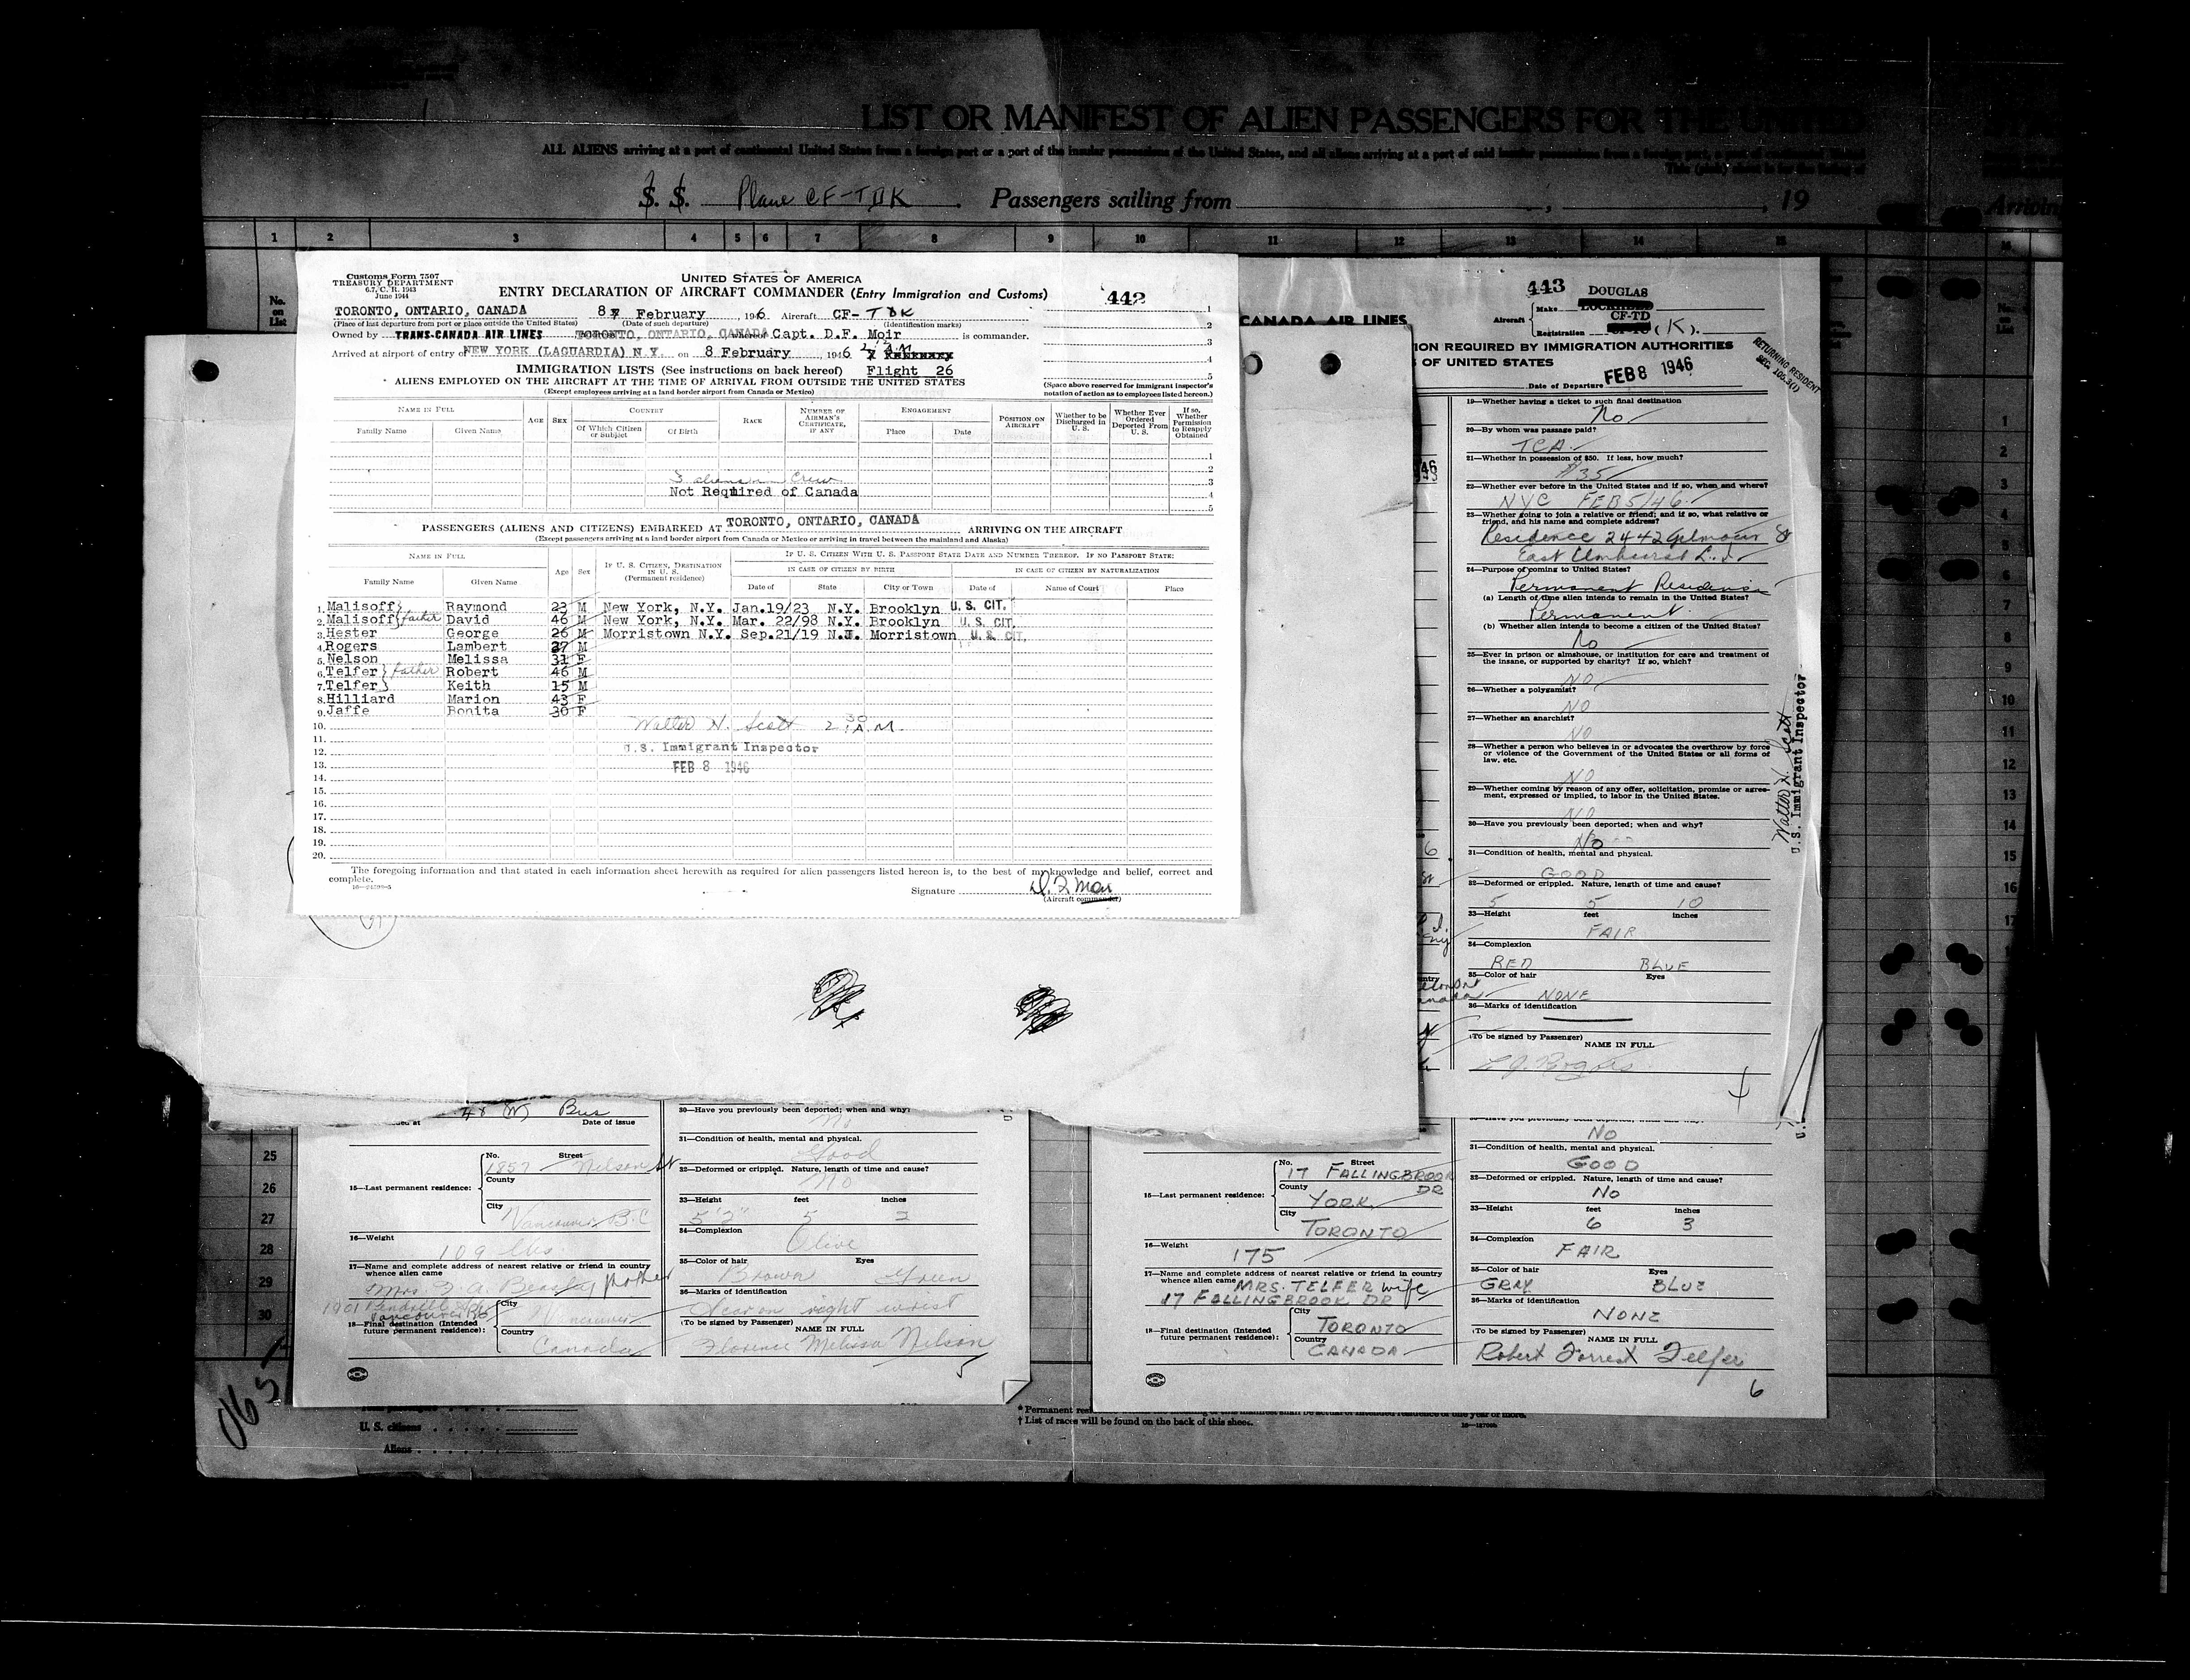 LIST OR MANIFEST OF ALIEN PASSENGERS FOR THE UNITED
ALL ALIENS arriving at a port of continental United States from a foreign port or a port of the insular possessions of the United States, and all aliens arriving at a port of said insular possessions from a foreign port, a port of
S. S. Plane CF-TDK . Passengers sailing from , , 19
Arriving
1 2 3 4 5 6 7 8 9 10 11 12 13 14 15
No. on List
Customs Form 7507
TREASURY DEPARTMENT
6.7, C. R. 1943
June 1944
UNITED STATES OF AMERICA
ENTRY DECLARATION OF AIRCRAFT COMMANDER (Entry Immigration and Customs)
442
TORONTO, ONTARIO, CANADA 8 February , 1946 Aircraft CF-TDK
(Place of last departure from port or place outside the United States) (Date of such departure) (Identification marks)
Owned by TRANS-CANADA AIR LINES TORONTO, ONTARIO, CANADA whereof Capt. D.F. Moir is commander.
Arrived at airport of entry of NEW YORK (LAGUARDIA) N.Y. on 8 February , 1946 A.M.
IMMIGRATION LISTS (See instructions on back hereof) Flight 26
ALIENS EMPLOYED ON THE AIRCRAFT AT THE TIME OF ARRIVAL FROM OUTSIDE THE UNITED STATES
(Except employees arriving at a land border airport from Canada or Mexico)
1
2
3
4
5
(Space above reserved for immigrant inspector's notation of action as to employees listed hereon.)
NAME IN FULL
Family Name Given Name
AGE SEX
COUNTRY
Of Which Citizen or Subject Of Birth
RACE
NUMBER OF AIRMAN'S CERTIFICATE, IF ANY
ENGAGEMENT
Place Date
POSITION ON AIRCRAFT
Whether to be Discharged in U. S.
Whether Ever Ordered Deported From U. S.
If so, Whether Permission to Reapply Obtained
1
2
3 aliens in Crew 3
Not Required of Canada 4
5
PASSENGERS (ALIENS AND CITIZENS) EMBARKED AT TORONTO, ONTARIO, CANADA ARRIVING ON THE AIRCRAFT
(Except passengers arriving at a land border airport from Canada or Mexico or arriving in travel between the mainland and Alaska)
NAME IN FULL
Family Name Given Name
Age Sex
IF U. S. CITIZEN, DESTINATION IN U. S. (Permanent residence)
IF U. S. CITIZEN WITH U. S. PASSPORT STATE DATE AND NUMBER THEREOF. IF NO PASSPORT STATE:
IN CASE OF CITIZEN BY BIRTH IN CASE OF CITIZEN BY NATURALIZATION
Date of State City or Town Date of Name of Court Place
1. Malisoff Raymond 23 M New York, N.Y. Jan.19/23 N.Y. Brooklyn U. S. CIT.
2. Malisoff father David 46 M New York, N.Y. Mar. 22/98 N.Y. Brooklyn U. S. CIT.
3. Hester George 26 M Morristown N.Y. Sep.21/19 N.J. Morristown U. S. CIT.
4. Rogers Lambert 27 M
5. Nelson Melissa 31 F
6. Telfer father Robert 46 M
7. Telfer Keith 15 M
8. Hilliard Marion 43 F
9. Jaffe Bonita 30 F
10. Walter N. Scott 2:30 A.M.
11.
12. U.S. Immigrant Inspector
13. FEB 8 1946
14.
15.
16.
17.
18.
19.
20.
The foregoing information and that stated in each information sheet herewith as required for alien passengers listed hereon is, to the best of my knowledge and belief, correct and complete.
16—24598-5
Signature D. F. Moir
(Aircraft commander)
443 DOUGLAS
CANADA AIR LINES
Aircraft Make
CF-TD
Registration (K).
ION REQUIRED BY IMMIGRATION AUTHORITIES
OF UNITED STATES
RETURNING RESIDENT
SEC. 105.3(1)
Date of Departure FEB 8 1946
19—Whether having a ticket to such final destination
No
20—By whom was passage paid?
TCA
21—Whether in possession of $50. If less, how much?
$35
22—Whether ever before in the United States and if so, when and where?
NYC FEB 5/46
23—Whether going to join a relative or friend; and if so, what relative or friend, and his name and complete address?
Residence 2442 Gilmour St
East Elmhurst L. I.
24—Purpose of coming to United States?
Permanent Residence
(a) Length of time alien intends to remain in the United States?
Permanent
(b) Whether alien intends to become a citizen of the United States?
No
25—Ever in prison or almshouse, or institution for care and treatment of the insane, or supported by charity? If so, which?
NO
26—Whether a polygamist?
NO
27—Whether an anarchist?
NO
28—Whether a person who believes in or advocates the overthrow by force or violence of the Government of the United States or all forms of law, etc.
NO
29—Whether coming by reason of any offer, solicitation, promise or agreement, expressed or implied, to labor in the United States.
NO
30—Have you previously been deported; when and why?
No
31—Condition of health, mental and physical.
GOOD
32—Deformed or crippled. Nature, length of time and cause?
5 5 10
33—Height feet inches
FAIR
34—Complexion
RED BLUE
35—Color of hair Eyes
NONE
36—Marks of identification
(To be signed by Passenger)
NAME IN FULL
L J Rogers
Walter N. Scott
U.S. Immigrant Inspector
48 (W) Bus
Date of issue
No. Street
1857 Nelson St
County
15—Last permanent residence:
City
Vancouver B.C
16—Weight
109 lbs
17—Name and complete address of nearest relative or friend in country whence alien came
Mrs F. A. Beasley Mother
1901 Pendrell
Vancouver BC
City
Vancouver
18—Final destination (Intended future permanent residence):
Country
Canada
30—Have you previously been deported; when and why?
No
31—Condition of health, mental and physical.
Good
32—Deformed or crippled. Nature, length of time and cause?
No
33—Height feet inches
5'2" 5 2
34—Complexion
Olive
35—Color of hair Eyes
Brown Green
36—Marks of identification
Scar on right wrist
(To be signed by Passenger)
NAME IN FULL
Florence Melissa Nelson
5
No. Street
17 FALLINGBROOK DR
County
15—Last permanent residence:
YORK
City
TORONTO
16—Weight
175
17—Name and complete address of nearest relative or friend in country whence alien came
MRS. TELFER wife
17 FALLINGBROOK DR
City
TORONTO
18—Final destination (Intended future permanent residence):
Country
CANADA
No
31—Condition of health, mental and physical.
GOOD
32—Deformed or crippled. Nature, length of time and cause?
No
33—Height feet inches
6 3
34—Complexion
FAIR
35—Color of hair Eyes
GRAY BLUE
36—Marks of identification
NONE
(To be signed by Passenger)
NAME IN FULL
Robert Forrest Telfer
6
25
26
27
28
29
30
U. S. citizens
Aliens
† List of races will be found on the back of this sheet.